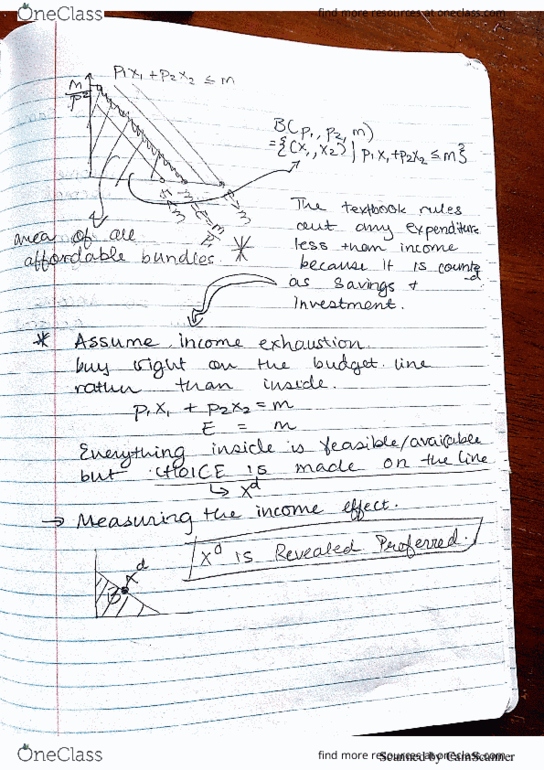 OneClass
find more resources at oneclass.com
p1x1 + p2x2 ≤ m
m
p2
B(p1, p2, m)
= {(x1, x2) | p1x1 + p2x2 ≤ m}
area of all
affordable bundles. *
The textbook rules
out any expenditure
less than income
because it is counted
as savings +
Investment.
* Assume income exhaustion.
buy right on the budget line
rathur than inside.
p1x1 + p2x2 = m
E = m
Everything inside is feasible/available
but CHOICE is made on the line
↳ xd
→ Measuring the income effect.
xd is Revealed Preferred.
xd
B
OneClass
find more resources at oneclass.com
Scanned by CamScanner